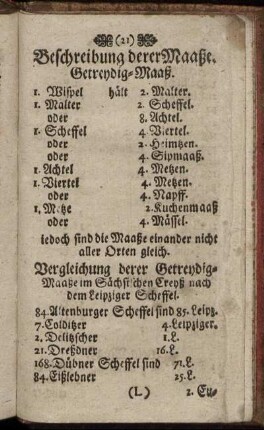 (21)
Beschreibung derer Maaße.
Getreydig-Maaß.
1. Wispel hält 2. Malter.
1 Malter 2. Scheffel.
oder 8. Achtel.
1. Scheffel 4. Viertel.
oder 2. Heimtzen.
oder 4. Sipmaaß.
1. Achtel 4. Metzen.
1. Viertel 4. Metzen.
oder 4. Napff.
1. Metze 2. Kuchenmaaß
oder 4. Mässel.
jedoch sind die Maaße einander nicht
aller Orten gleich.
Vergleichung derer Getreydig-
Maaße im Sächsischen Creyß nach
dem Leipziger Scheffel.
84. Altenburger Scheffel sind 85. Leipz.
7. Colditzer 4. Leipziger.
2. Delitzscher 1. L.
21. Dreßdner 16. L.
168. Dübner Scheffel sind 71. L.
84. Eißlebner 25. L.
(L) 2. Eu-